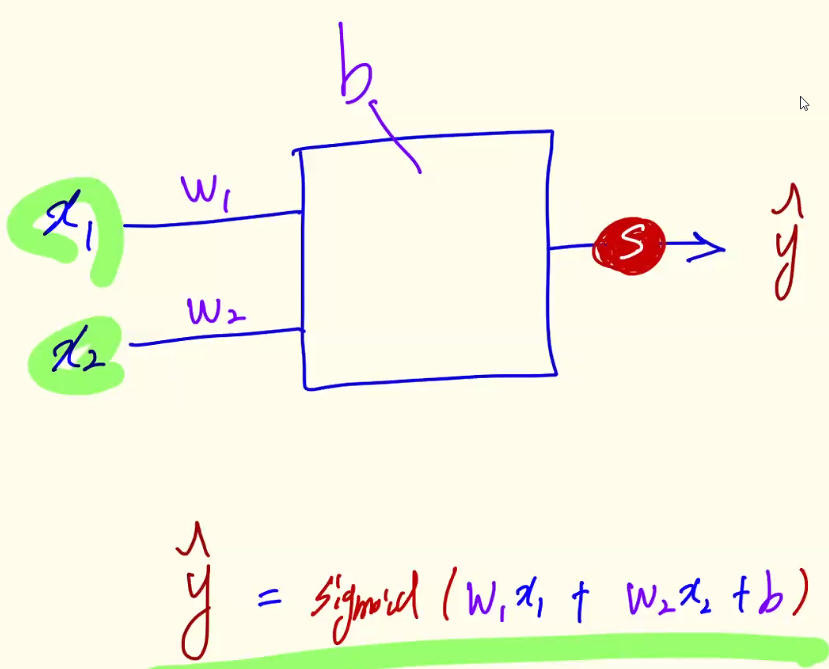 b
x₁ w₁
S ŷ
x₂ w₂
ŷ = sigmoid (w₁x₁ + w₂x₂ + b)